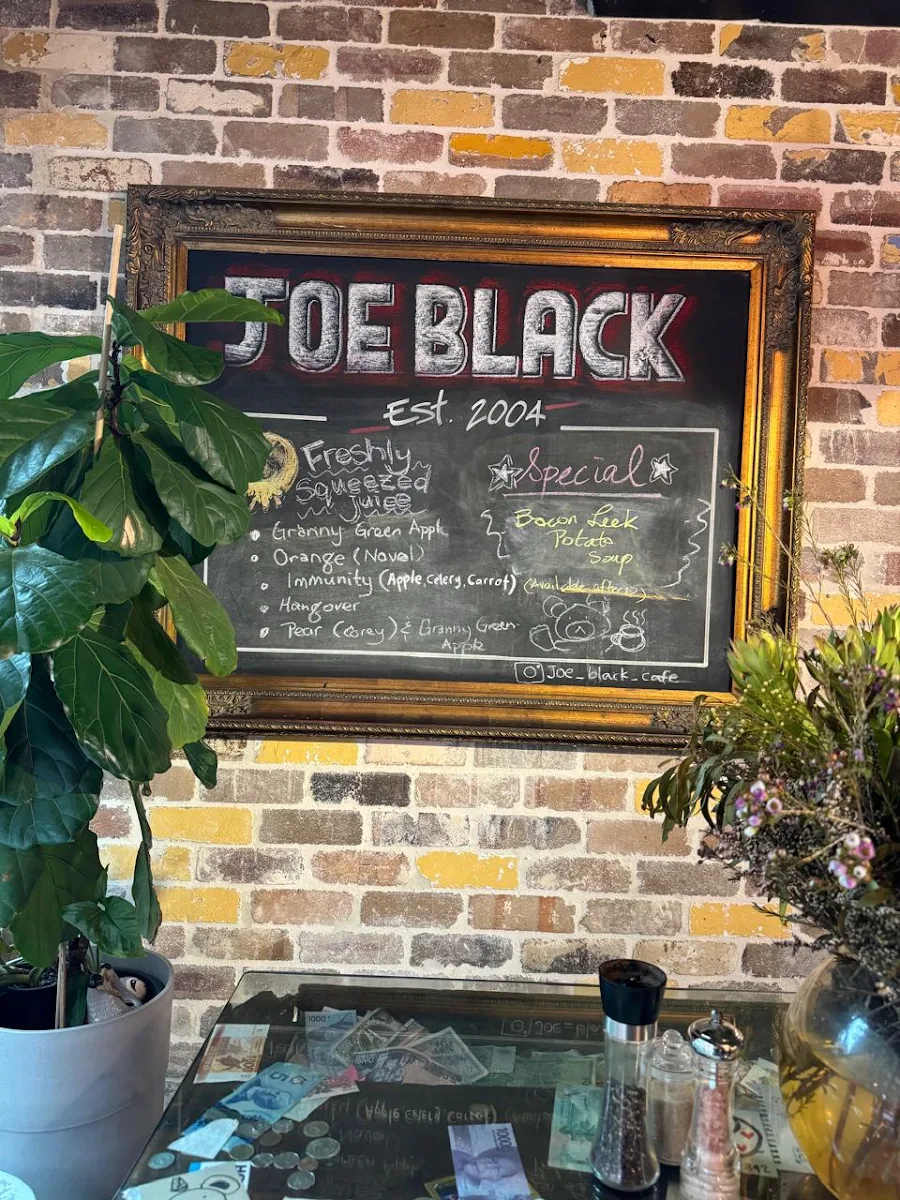 JOE BLACK
Est. 2004
Freshly
Squeezed
Juice
Granny Green Apple
Orange (Naval)
Immunity (Apple, Celery, Carrot)
Hangover
Pear (Corey) & Granny Green
Apple
Special
Bacon Leek
Potato
Soup
(Available after 12)
Joe_black_cafe
1000
1000